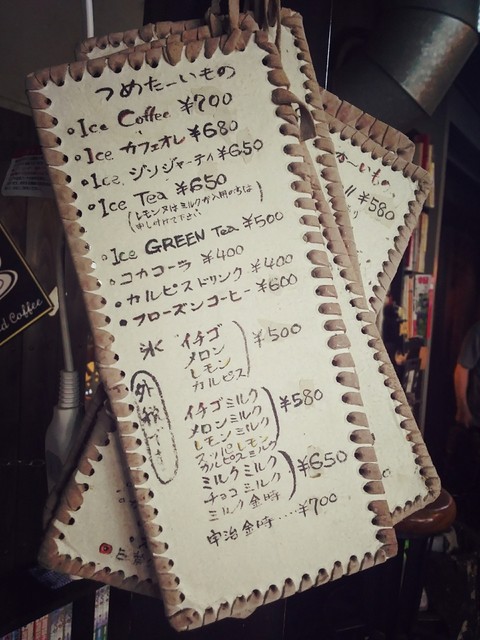 つめたーいもの
Ice Coffee ¥700
Ice カフェオレ ¥680
Ice ジンジャーティ ¥650
Ice Tea ¥650
(レモン又はミルクが入用の方は
申し付けて下さい)
Ice GREEN Tea ¥500
コカコーラ ¥400
カルピスドリンク ¥400
フローズンコーヒー ¥600
氷 イチゴ
メロン
レモン
カルピス
¥500
イチゴミルク
メロンミルク
レモンミルク
スッパレモン
カルピスミルク
¥580
ミルクミルク
チョコミルク
ミルク金時
¥650
宇治金時....¥700
か〜いもの
¥580
Coffee